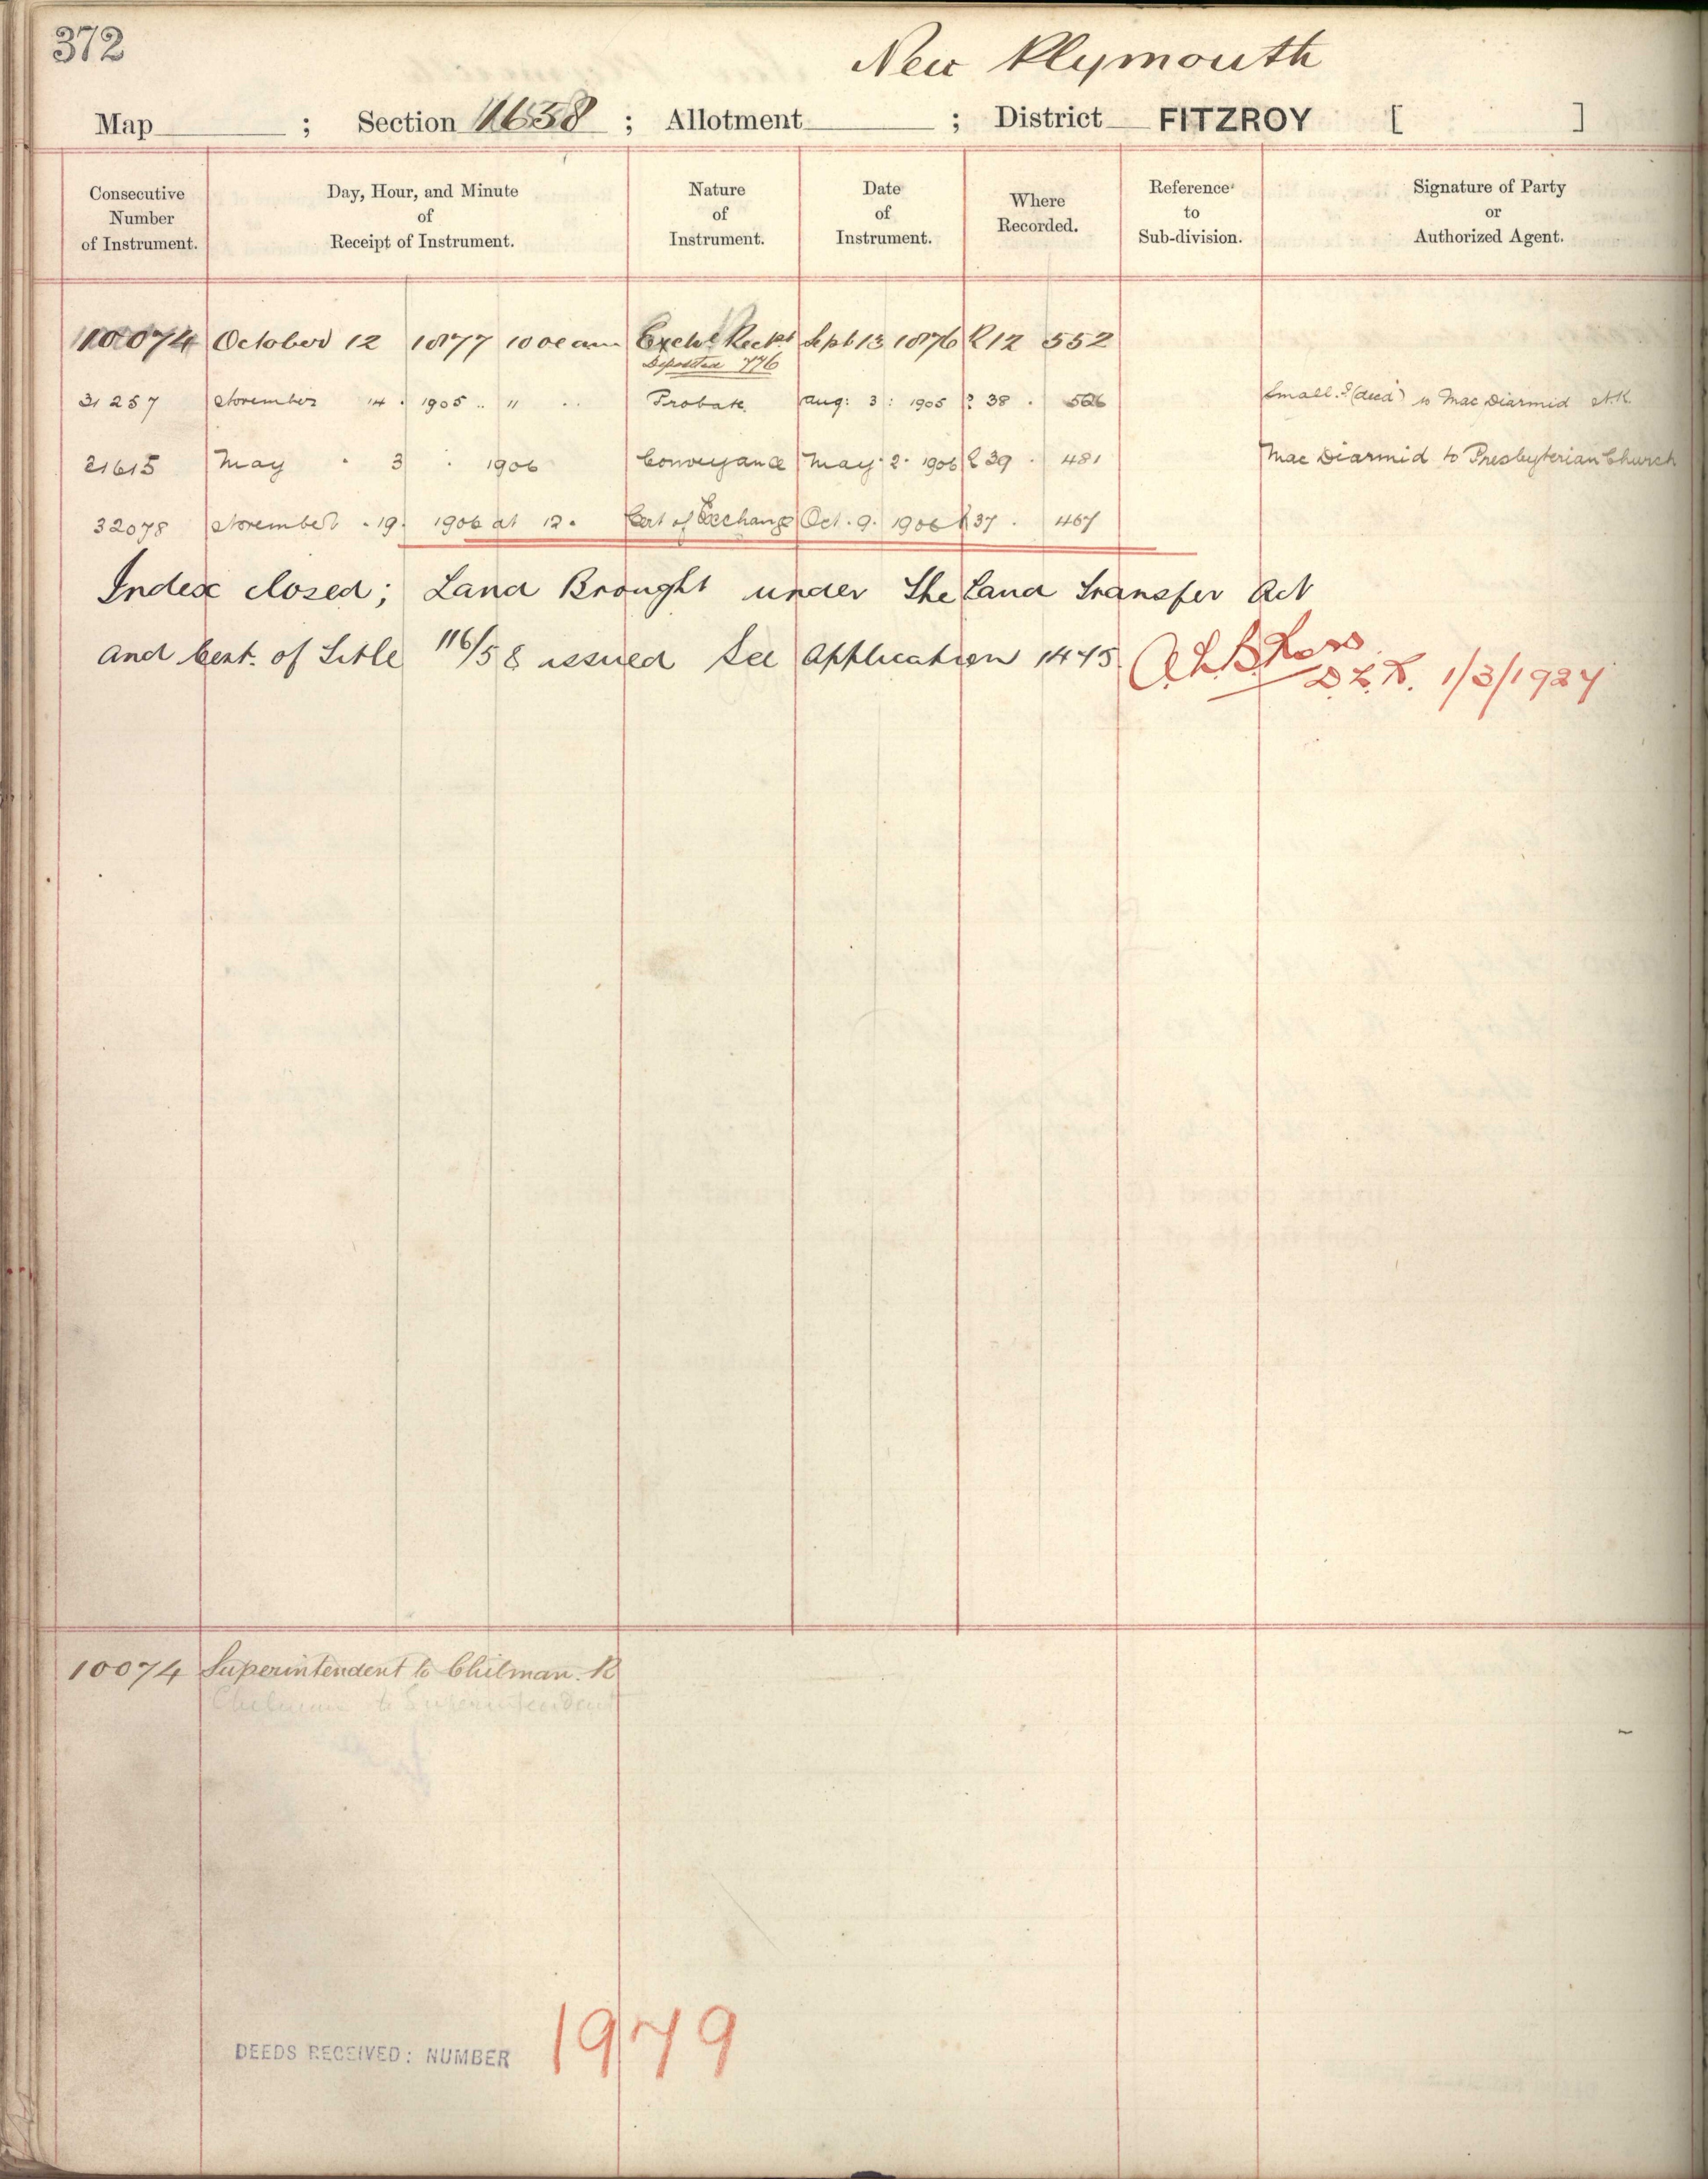 372
New Plymouth
Map ; Section 1638 ; Allotment ; District FITZROY [ ]
Consecutive Number of Instrument.
Day, Hour, and Minute of Receipt of Instrument.
Nature of Instrument.
Date of Instrument.
Where Recorded.
Reference to Sub-division.
Signature of Party or Authorized Agent.
10074 October 12 1877 10 oc am Exche Reept Sept 13 1876 R12 552
Deposited 776
31257 November 14 . 1905 .. 11 .. Probate Aug: 3 : 1905 R 38 . 526 Small. (decd) to Mac Diarmid
21615 May . 3 . 1906 Conveyance May. 2. 1906 R 39 . 481 Mac Diarmid to Presbyterian Church
32078 November . 19. 1906 at 12. Cert of Exchange Oct. 9. 1906 R 37 . 467
Index closed; Land Brought under The Land Transfer Act
and Cert. of Title 116/58 issued See Application 1445
D.L.R. 1/3/1927
10074 Superintendent to Chilman. R
Chilman to Superintendent
DEEDS RECEIVED: NUMBER 1979